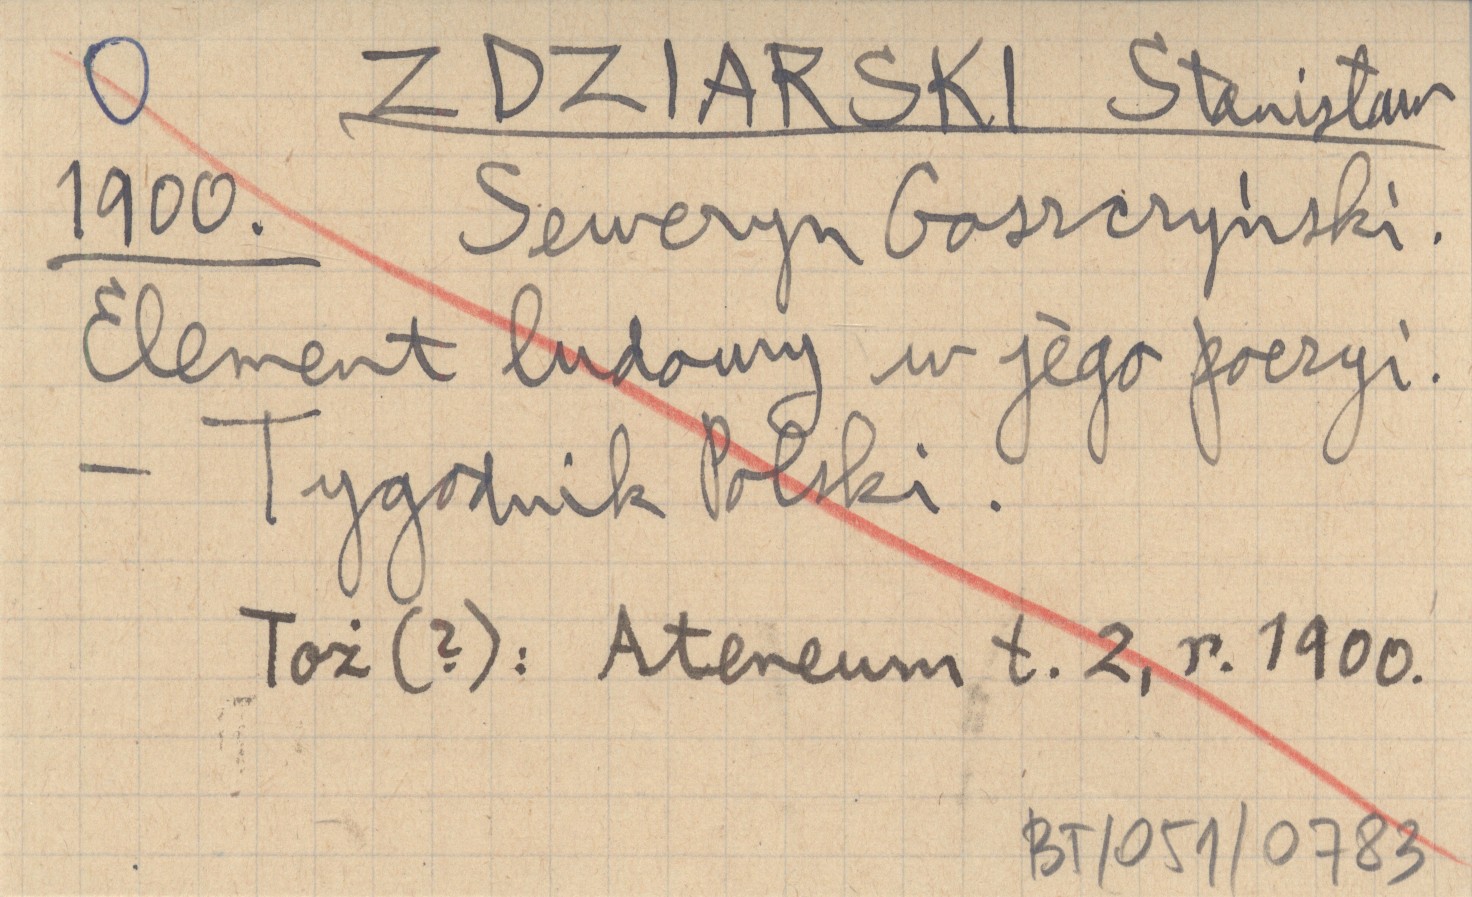 ZDZIARSKI Stanisław
1900. Seweryn Goszczyński.
Element ludowy w jego poezyi.
— Tygodnik Polski.
Toż (?): Ateneum t. 2, r. 1900.
BT/051/0783